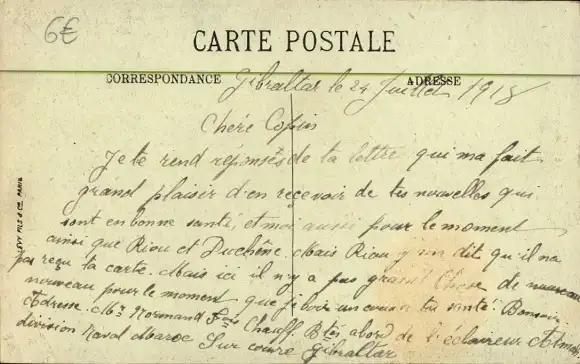 6€
CARTE POSTALE
CORRESPONDANCE
ADRESSE
Gibraltar le 24 Juillet 1918
Chère Copin
Je te rend réponses de ta lettre qui ma fait
grand plaisir d'en reçevoir de tes nouvelles qui
sont en bonne santé, et moi aussi pour le moment
ainsi que Riou et Duchêne. Mais Riou y ma dit qu'il na
pas reçu ta carte. Mais ici il n-y a pas grand Chose de nouveau
nouveau pour le moment que je boir un coup a ta santé. Bonsoir
Adresse. Mr Normand Chauff. abord de l'éclaireur
division Naval Maroc Sur course Gibraltar
LEVY FILS & Cie PARIS